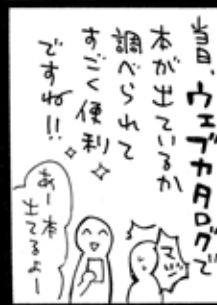 当日、ウェブカタログで
本が出ているか
調べられて
すごく便利
ですね!!
あー本
出てるよー
マジッ